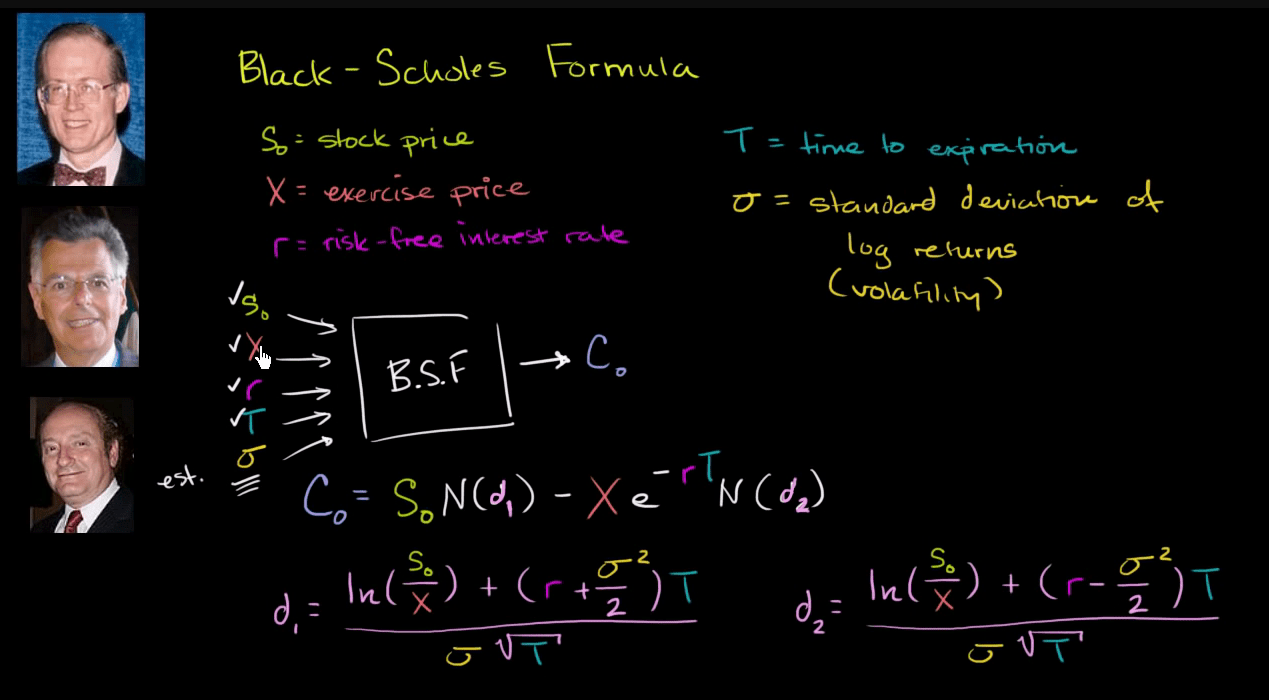 Black-Scholes Formula
S₀ = stock price
X = exercise price
r = risk-free interest rate
T = time to expiration
σ = standard deviation of
log returns
(volatility)
✓S₀
✓X
✓r
✓T
est. σ
B.S.F
C₀
C₀ = S₀N(d₁) - Xe^(-rT)N(d₂)
d₁ = (ln(S₀/X) + (r + σ²/2)T) / (σ√T)
d₂ = (ln(S₀/X) + (r - σ²/2)T) / (σ√T)